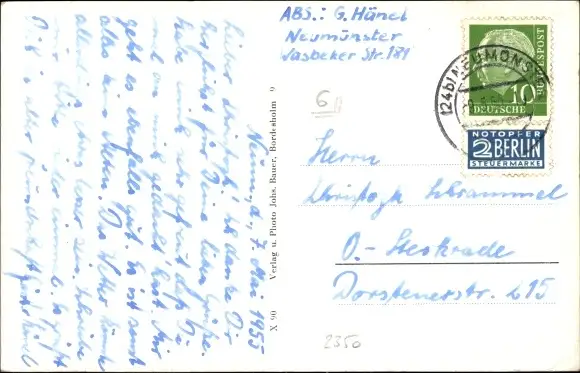 Neumü., d. 7. Mai 1955
Lieber Christoph! Ich danke Dir
herzlichst für Deine lieben Grüße.
Habe mich sehr gefreut daß Du
mal an mich gedacht hast. Mir
geht es ebenfalls gut. Es ist sonst
alles beim Alten. Das Wetter könnte
allerdings besser sein.
ABS.: G. Hänel
Neumünster
Wasbeker Str. 181
6
(24b) NEUMÜNSTER
10
DEUTSCHE
BUNDESPOST
NOTOPFER
2 BERLIN
STEUERMARKE
Herrn
Christoph Schrammel
O.-Sterkrade
Dorstenerstr. 215
2350
X 90 Verlag u. Photo Johs. Bauer, Bordesholm 9